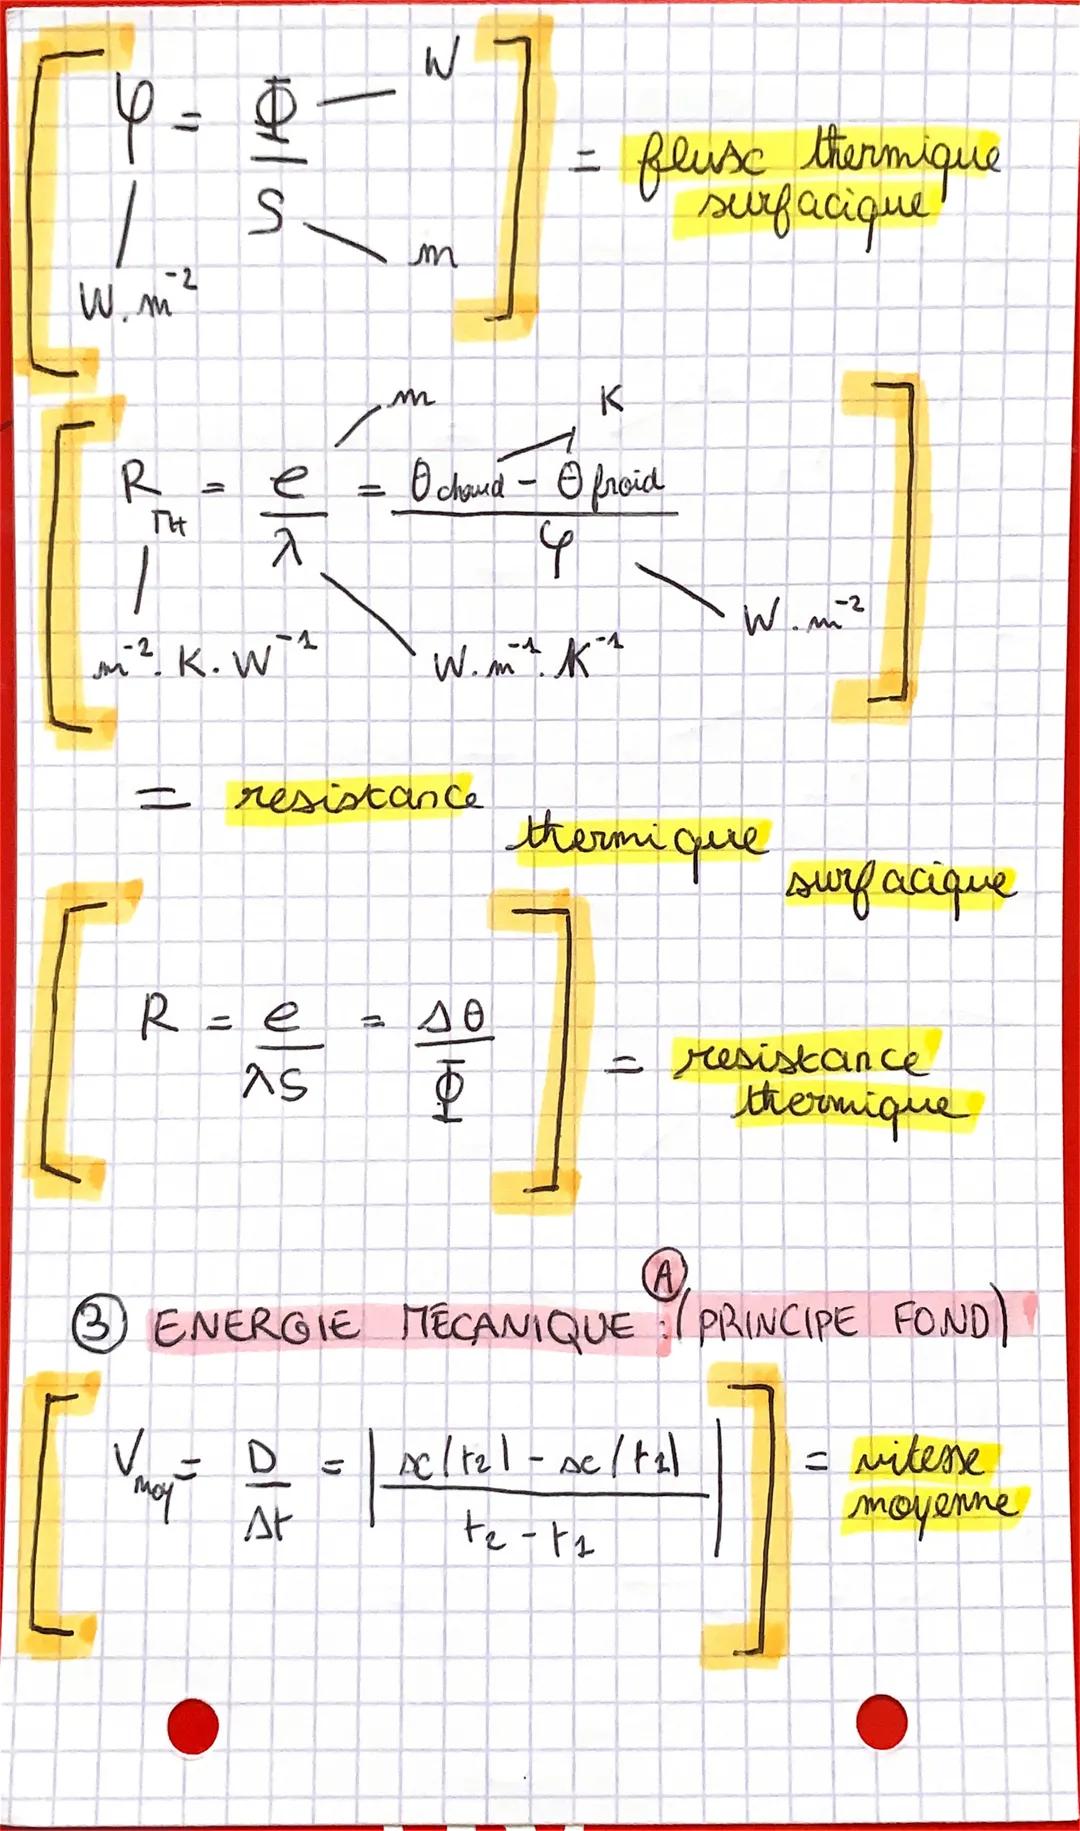 φ = Φ / S = flux thermique
W
surfacique
m
W.m⁻²
m K
R_TH = e / λ = θ chaud - θ froid / φ
m⁻². K. W⁻¹ W. m⁻¹. K⁻¹ W. m⁻²
= resistance
thermique
surfacique
R = e / λS = Δθ / Φ = resistance
thermique
③ ENERGIE MECANIQUE : Ⓐ (PRINCIPE FOND)
V_moy = D / Δt = | x(t₂) - x(t₁) / t₂ - t₁ | = vitesse
moyenne